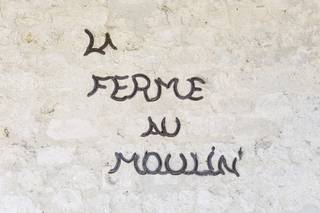 LA
FERME
AU
MOULIN'